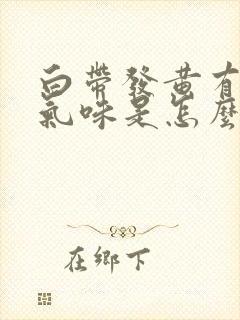 白帶發黃有
氣味是怎麼
在鄉下